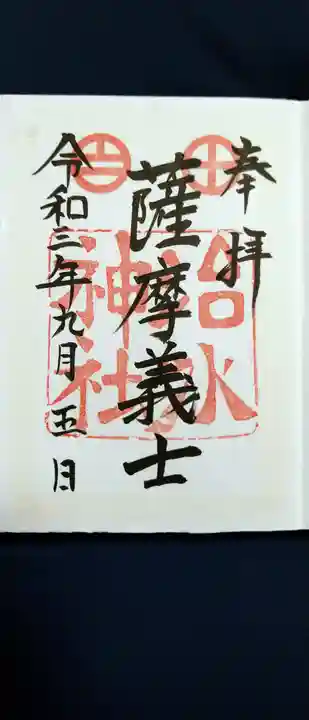 奉拝
薩摩義士
治水
神社
令和三年九月五日